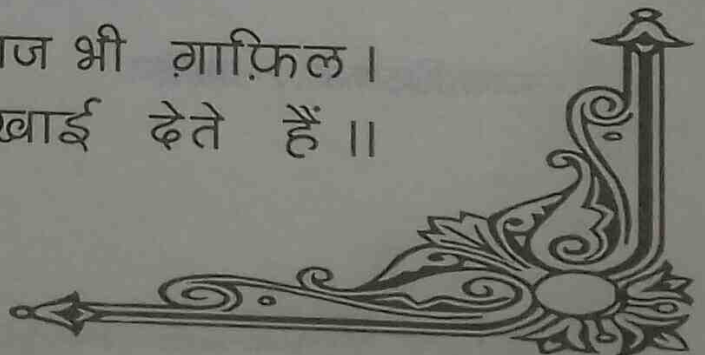 ज भी ग़ाफ़िल ।
खाई देते हैं ।।